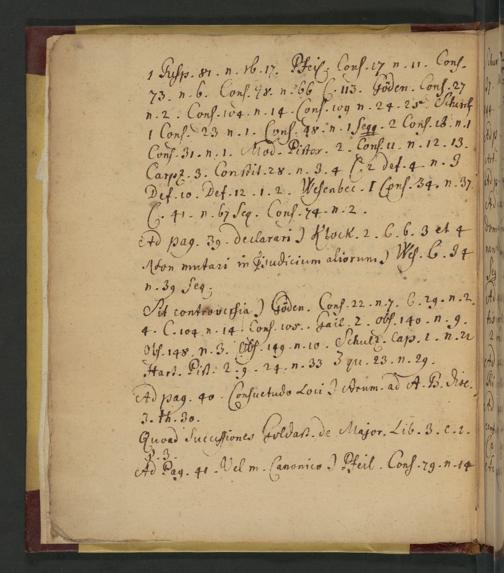 1 Resp. 81. n. 16. 17. Pfeil. Cons. 17 n. 11. Cons.
73. n. 6. Cons. 98. n. 66 C. 113. Göden. Cons. 27
n. 2. Cons. 104. n. 14. Cons. 109 n. 24. 25. Schurf
1 Cons. 23 n. 1. Cons. 48. n. 1 seqq. 2 Cons. 18. n. 1
Cons. 31. n. 1. Mod. Pistor. 2. Cons. 11. n. 12. 13.
Carpz. 3. Constit. 28. n. 3. 4 C. 2 def. 4. n. 9
Def. 10. Def. 12. 1. 2. Wesenbec. 1 Cons. 34. n. 37.
C. 41. n. 67 seq. Cons. 74. n. 2.
Ad pag. 39. declarari) Klock. 2. C. 6. 3 et 4
Non mutari in judicium aliorum) Wes. C. 34
n. 39 seq.
Sit controversia) Göden. Cons. 22. n. 7. C. 29. n. 2
4. C. 104 n. 14. Cons. 105. Gail. 2. obs. 140. n. 9.
obs. 148. n. 3. Obs. 149. n. 10. Schulz. Cap. 1. n. 21
Hart. Pist. 2. q. 24. n. 33 3 qu. 23. n. 29.
Ad pag. 40. Consuetudo Loci) Arum. ad A. B. disc.
3. th. 30.
Quoad Successiones Goldast. de Major. Lib. 3. c. 2.
p. 3.
Ad Pag. 41. Vel m. Canonico) Pfeil. Cons. 79. n. 14